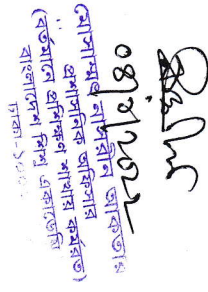 ০৪/৮/২০২২
মোসাম্মৎ নাসরীন আকতার
প্রশাসনিক অফিসার
(বর্তমানে প্রশিক্ষণ শাখায় কর্মরত)
বাংলাদেশ শিশু একাডেমি
ঢাকা-১০০০